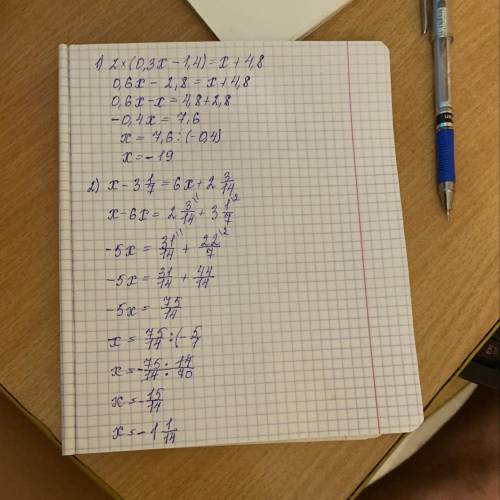 1) 2×(0,3x-1,4)=x+4,8
0,6x-2,8=x+4,8
0,6x-x=4,8+2,8
-0,4x=7,6
x=7,6:(-0,4)
x=-19
2) x-3 1/7=6x+2 3/14
x-6x=2 3/14\1+3 1/7\2
-5x=31/14\1+22/7\2
-5x=31/14+44/14
-5x=75/14
x=75/14:(-5/1
x=-75/14:14/70
x=-15/14
x=-1 1/14